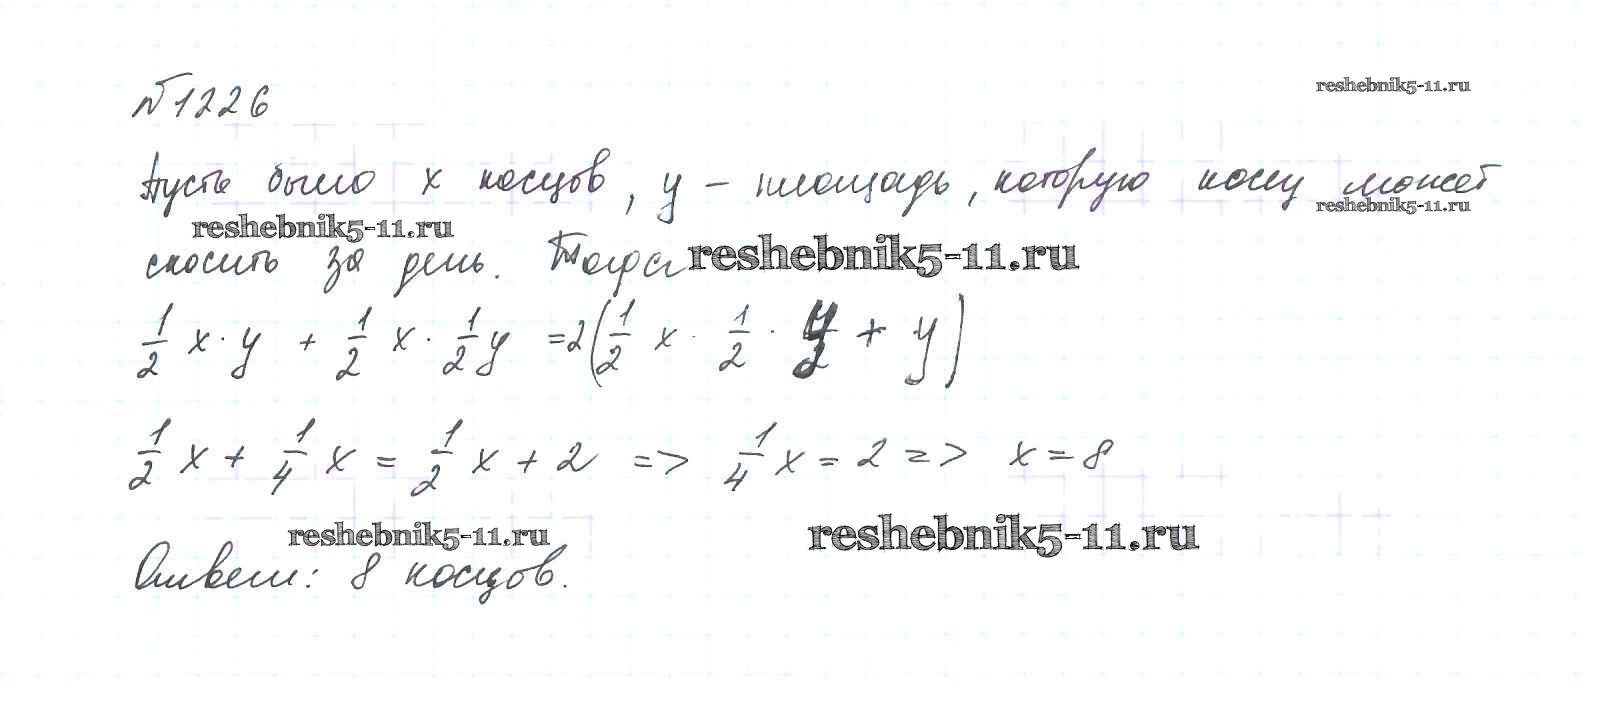 №1226
reshebnik5-11.ru
Пусть было x косцов, y – площадь, которую косец может
reshebnik5-11.ru
reshebnik5-11.ru
скосить за день. Тогда
reshebnik5-11.ru
1/2 x · y + 1/2 x · 1/2 y = 2(1/2 x · 1/2 · y/2 + y)
1/2 x + 1/4 x = 1/2 x + 2 => 1/4 x = 2 => x = 8
reshebnik5-11.ru
reshebnik5-11.ru
Ответ: 8 косцов.